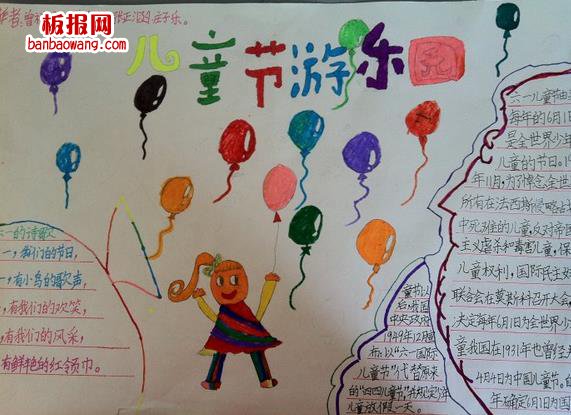 板报网
banbaowang.com
作者:曾
庄子乐。
儿童节游乐园
六一的诗歌
一,我们的节日,
一,有小鸟的歌声,
,有我们的欢笑,
,有我们的风采,
有鲜艳的红领巾。
童节以
后,我国
中央政府
1949年12月
布:以“六一国际
儿童节”代替原来
的“四四儿童节”并规定少年
儿童放假一天。
六一儿童节由
每年的6月1日
是全世界少年
儿童的节日。19
年11月,为了悼念全世
所有在法西斯侵略占
中死难的儿童,反对帝国
主义虐杀和毒害儿童,保
儿童权利,国际民主妇
联合会在莫斯科召开大会,
决定每年6月1日为全世界少
童我国在1931年也曾经
4月4日为中国儿童节。
年确定6月1日为国